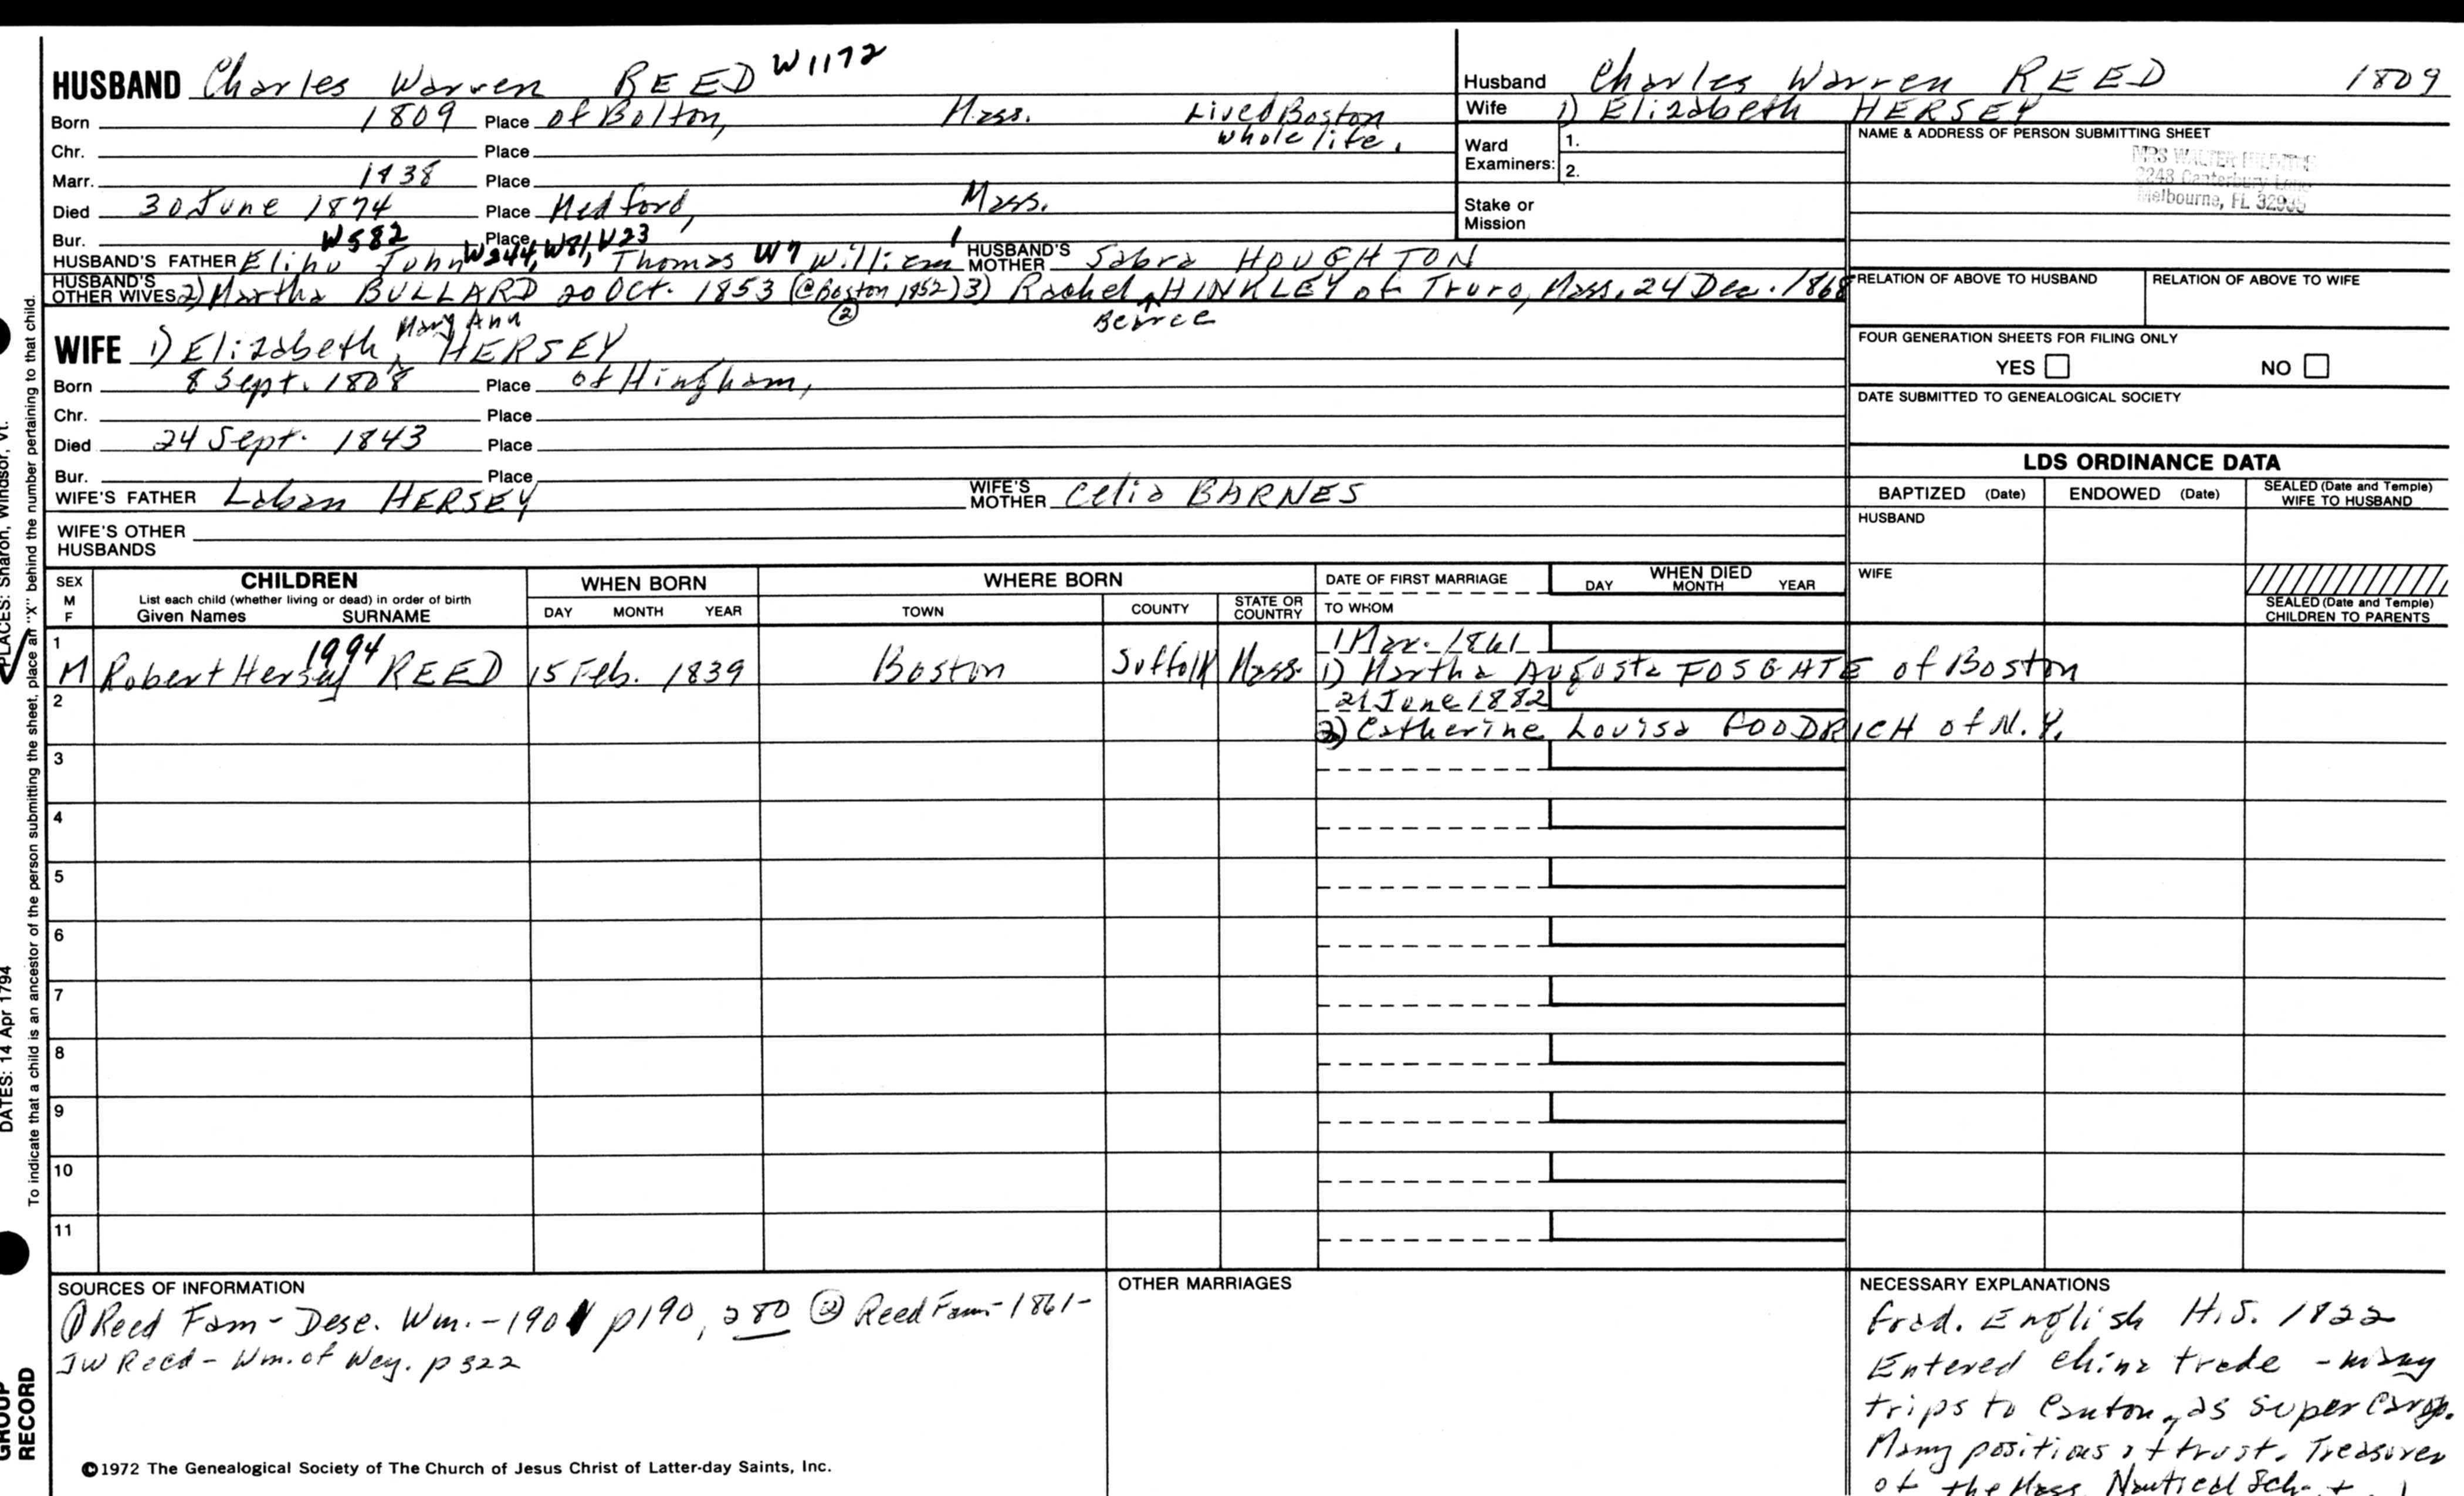 HUSBAND Charles Warren REED W1172
Born 1809 Place of Bolton, Mass. Lived Boston whole life.
Chr. Place
Marr. 1838 Place
Died 30 June 1874 Place Medford, Mass.
Bur. Place
HUSBAND'S FATHER Elihu W582 John W244, W81, W23 Thomas W7 William 1 HUSBAND'S MOTHER Sabra HOUGHTON
HUSBAND'S OTHER WIVES 2) Martha BULLARD 20 Oct. 1853 (@ Boston 1852) ② 3) Rachel Bearce HINKLEY of Truro, Mass. 24 Dec. 1868
WIFE 1) Elizabeth Mary Ann HERSEY
Born 8 Sept. 1808 Place of Hingham,
Chr. Place
Died 24 Sept. 1843 Place
Bur. Place
WIFE'S FATHER Laban HERSEY WIFE'S MOTHER Celia BARNES
WIFE'S OTHER HUSBANDS
Husband Charles Warren REED 1809
Wife 1) Elizabeth HERSEY
Ward Examiners: 1.
2.
Stake or Mission
NAME & ADDRESS OF PERSON SUBMITTING SHEET
MRS WALTER
2248 Canterbury Lane
Melbourne, FL 32935
RELATION OF ABOVE TO HUSBAND RELATION OF ABOVE TO WIFE
FOUR GENERATION SHEETS FOR FILING ONLY
YES NO
DATE SUBMITTED TO GENEALOGICAL SOCIETY
LDS ORDINANCE DATA
BAPTIZED (Date) ENDOWED (Date) SEALED (Date and Temple) WIFE TO HUSBAND
HUSBAND
WIFE
SEALED (Date and Temple) CHILDREN TO PARENTS
SEX M F CHILDREN WHEN BORN WHERE BORN DATE OF FIRST MARRIAGE WHEN DIED
List each child (whether living or dead) in order of birth
Given Names SURNAME DAY MONTH YEAR TOWN COUNTY STATE OR COUNTRY TO WHOM DAY MONTH YEAR
1 1994 1 Mar. 1861
M Robert Hersey REED 15 Feb. 1839 Boston Suffolk Mass. 1) Martha Augusta FOSGATE of Boston
2 21 June 1882
2) Catherine Louisa GOODRICH of N.Y.
3
4
5
6
7
8
9
10
11
SOURCES OF INFORMATION
① Reed Fam - Desc. Wm. - 1901 p190, 280 ② Reed Fam - 1861-
JW Reed - Wm. of Wey. p 322
OTHER MARRIAGES
NECESSARY EXPLANATIONS
Grad. English H.S. 1822
Entered China trade - many
trips to Canton, as super cargo.
Many positions of trust. Treasurer
of the Mass. Nautical Sch.
©1972 The Genealogical Society of The Church of Jesus Christ of Latter-day Saints, Inc.
PLACES: Sharon, Windsor, Vt.
To indicate that a child is an ancestor of the person submitting the sheet, place an "X" behind the number pertaining to that child.
DATES: 14 Apr 1794
GROUP
RECORD